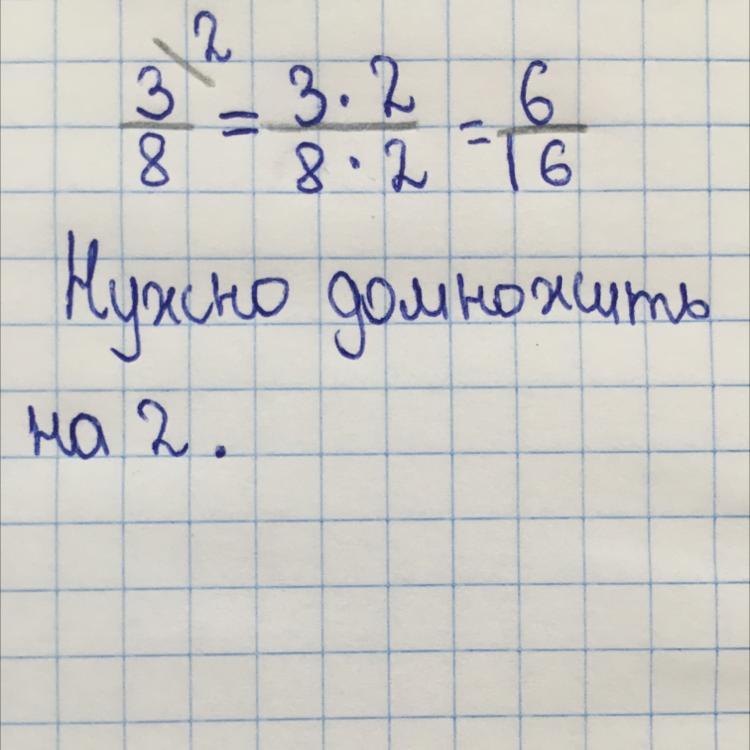 3/8 \ 2 = 3 · 2 / 8 · 2 = 6/16
Нужно домножить
на 2.